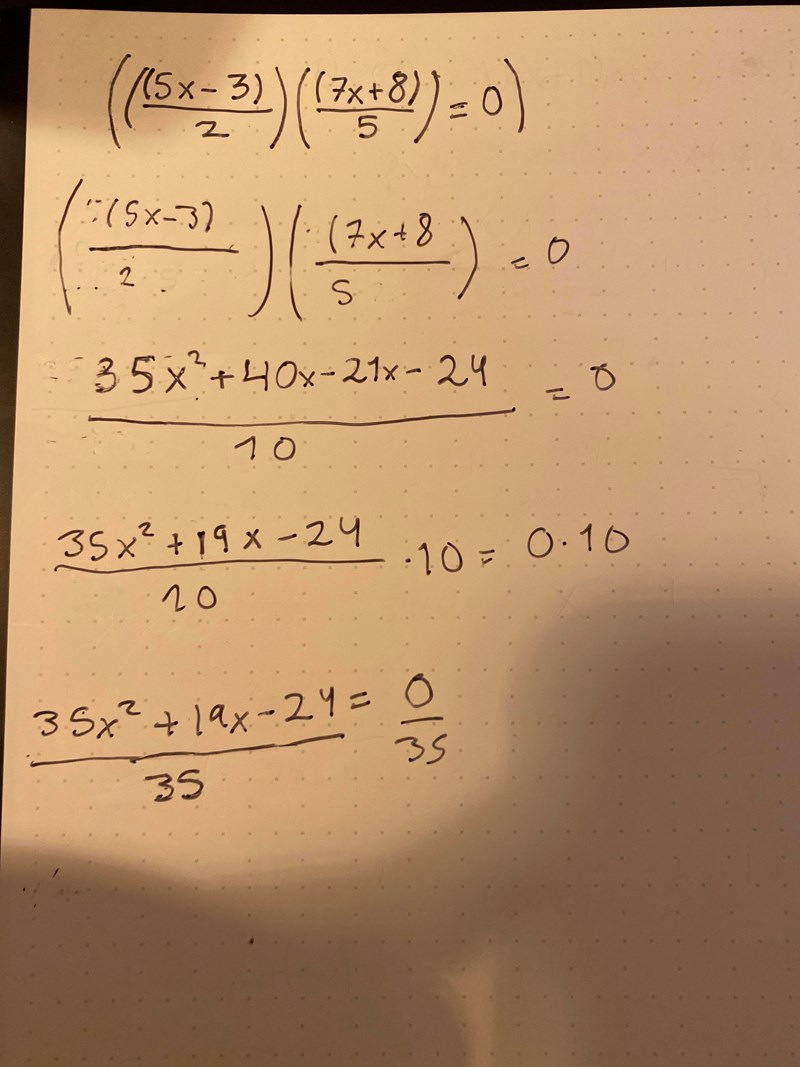 (((5x-3)/2)((7x+8)/5)=0)
((5x-3)/2)((7x+8/5)=0
(35x²+40x-21x-24)/10=0
(35x²+19x-24)/10·10=0·10
(35x²+19x-24)/35=0/35